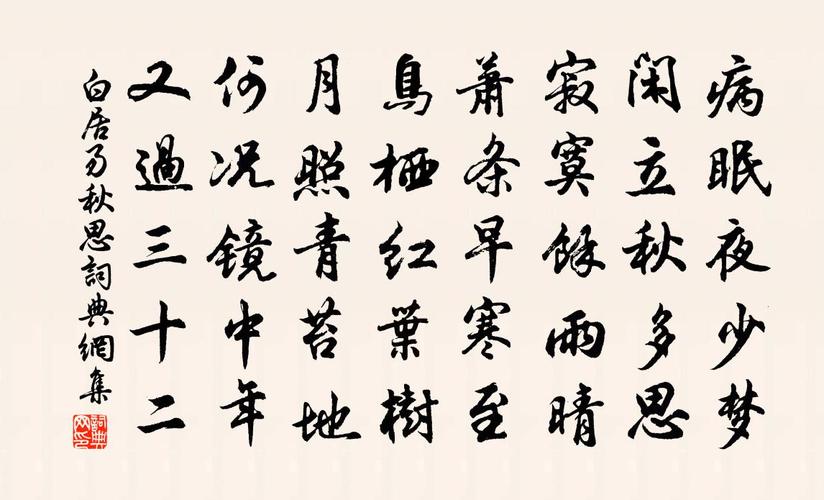 病眠夜少梦
闲立秋多思
寂寞餘雨晴
萧条早寒至
鳥栖红葉樹
月照青苔地
何况镜中年
又過三十二
白居易秋思詞典網集
詞典网印